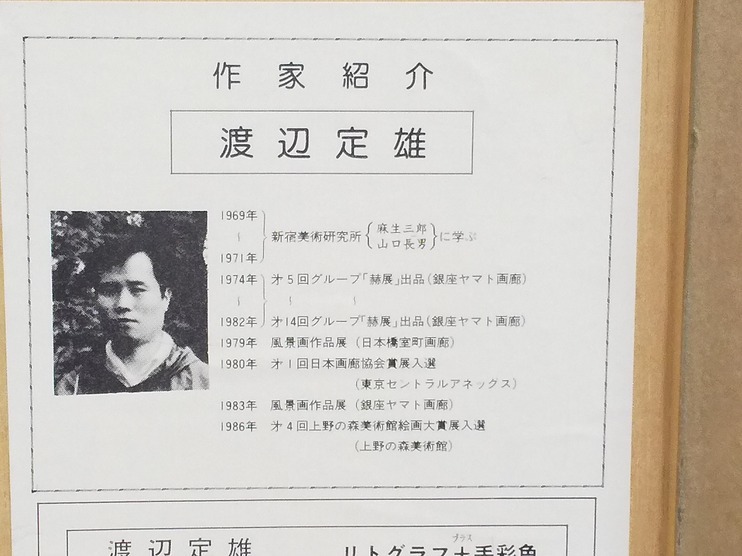 作家紹介
渡辺定雄
1969年
〜
1971年
新宿美術研究所{麻生三郎 山口長男}に学ぶ
1974年 才5回グループ「赫展」出品(銀座ヤマト画廊)
〜 〜 〜
1982年 才14回グループ「赫展」出品(銀座ヤマト画廊)
1979年 風景画作品展(日本橋室町画廊)
1980年 才1回日本画廊協会賞展入選
(東京セントラルアネックス)
1983年 風景画作品展(銀座ヤマト画廊)
1986年 才4回上野の森美術館絵画大賞展入選
(上野の森美術館)
プラス
渡辺定雄 リトグラフ+手彩色